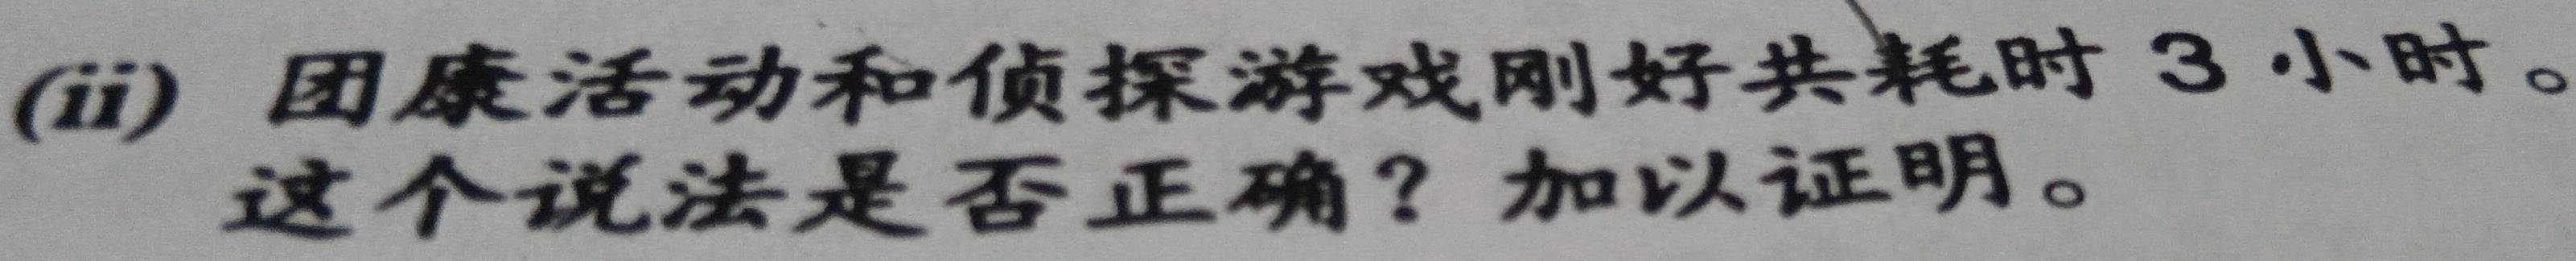 (ii) 团康活动和侦探游戏刚好共耗时 3 小时。
这个说法是否正确？加以证明。